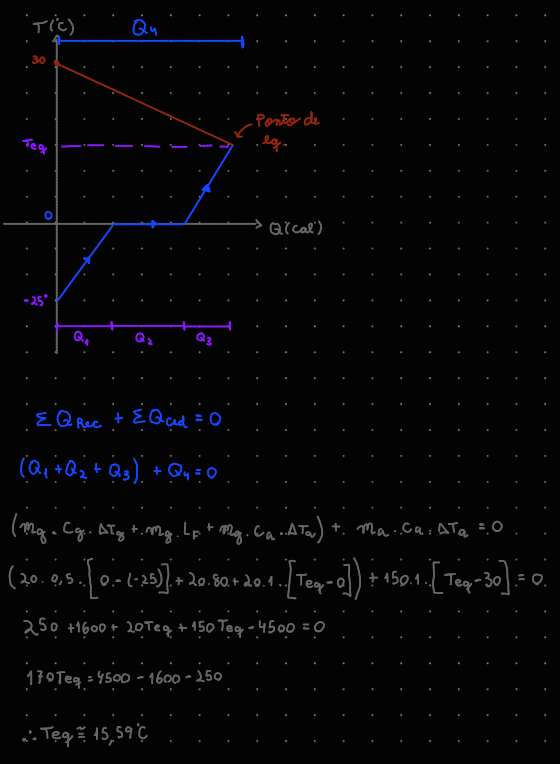 T(°C)
Q4
30
Ponto de
eq.
Teq
0
Q(cal)
-25°
Q1 Q2 Q3
Σ QRec + Σ QCed = 0
(Q1 + Q2 + Q3) + Q4 = 0
(mg . Cg . ΔTg + mg . LF + mg . Ca . ΔTa) + ma . Ca . ΔTa = 0
(20 . 0,5 . [0 - (-25)] + 20.80 + 20.1 . [Teq - 0]) + 150.1 . [Teq - 30] = 0
250 + 1600 + 20Teq + 150Teq - 4500 = 0
170Teq = 4500 - 1600 - 250
∴ Teq ≅ 15,59°C